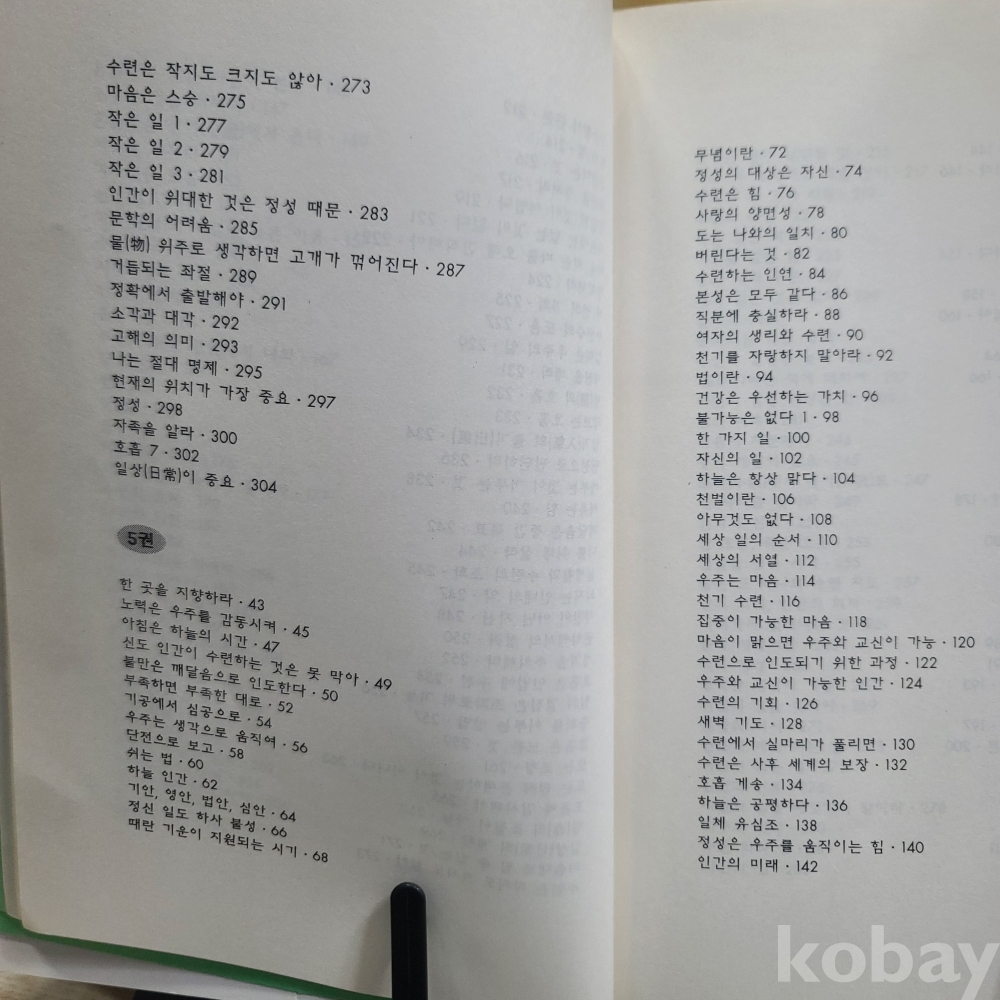 수련은 작지도 크지도 않아 · 273
마음은 스승 · 275
작은 일 1 · 277
작은 일 2 · 279
작은 일 3 · 281
인간이 위대한 것은 정성 때문 · 283
문학의 어려움 · 285
물(物) 위주로 생각하면 고개가 꺾어진다 · 287
거듭되는 좌절 · 289
정확에서 출발해야 · 291
소각과 대각 · 292
고해의 의미 · 293
나는 절대 명제 · 295
현재의 위치가 가장 중요 · 297
정성 · 298
자족을 알라 · 300
호흡 7 · 302
일상(日常)이 중요 · 304
5권
한 곳을 지향하라 · 43
노력은 우주를 감동시켜 · 45
아침은 하늘의 시간 · 47
신도 인간이 수련하는 것은 못 막아 · 49
불만은 깨달음으로 인도한다 · 50
부족하면 부족한 대로 · 52
기공에서 심공으로 · 54
우주는 생각으로 움직여 · 56
단전으로 보고 · 58
쉬는 법 · 60
하늘 인간 · 62
기안, 영안, 법안, 심안 · 64
정신 일도 하사 불성 · 66
때란 기운이 지원되는 시기 · 68
무념이란 · 72
정성의 대상은 자신 · 74
수련은 힘 · 76
사랑의 양면성 · 78
도는 나와의 일치 · 80
버린다는 것 · 82
수련하는 인연 · 84
본성은 모두 같다 · 86
직분에 충실하라 · 88
여자의 생리와 수련 · 90
천기를 자랑하지 말아라 · 92
법이란 · 94
건강은 우선하는 가치 · 96
불가능은 없다 1 · 98
한 가지 일 · 100
자신의 일 · 102
하늘은 항상 맑다 · 104
천벌이란 · 106
아무것도 없다 · 108
세상 일의 순서 · 110
세상의 서열 · 112
우주는 마음 · 114
천기 수련 · 116
집중이 가능한 마음 · 118
마음이 맑으면 우주와 교신이 가능 · 120
수련으로 인도되기 위한 과정 · 122
우주와 교신이 가능한 인간 · 124
수련의 기회 · 126
새벽 기도 · 128
수련에서 실마리가 풀리면 · 130
수련은 사후 세계의 보장 · 132
호흡 게송 · 134
하늘은 공평하다 · 136
일체 유심조 · 138
정성은 우주를 움직이는 힘 · 140
인간의 미래 · 142
kobay